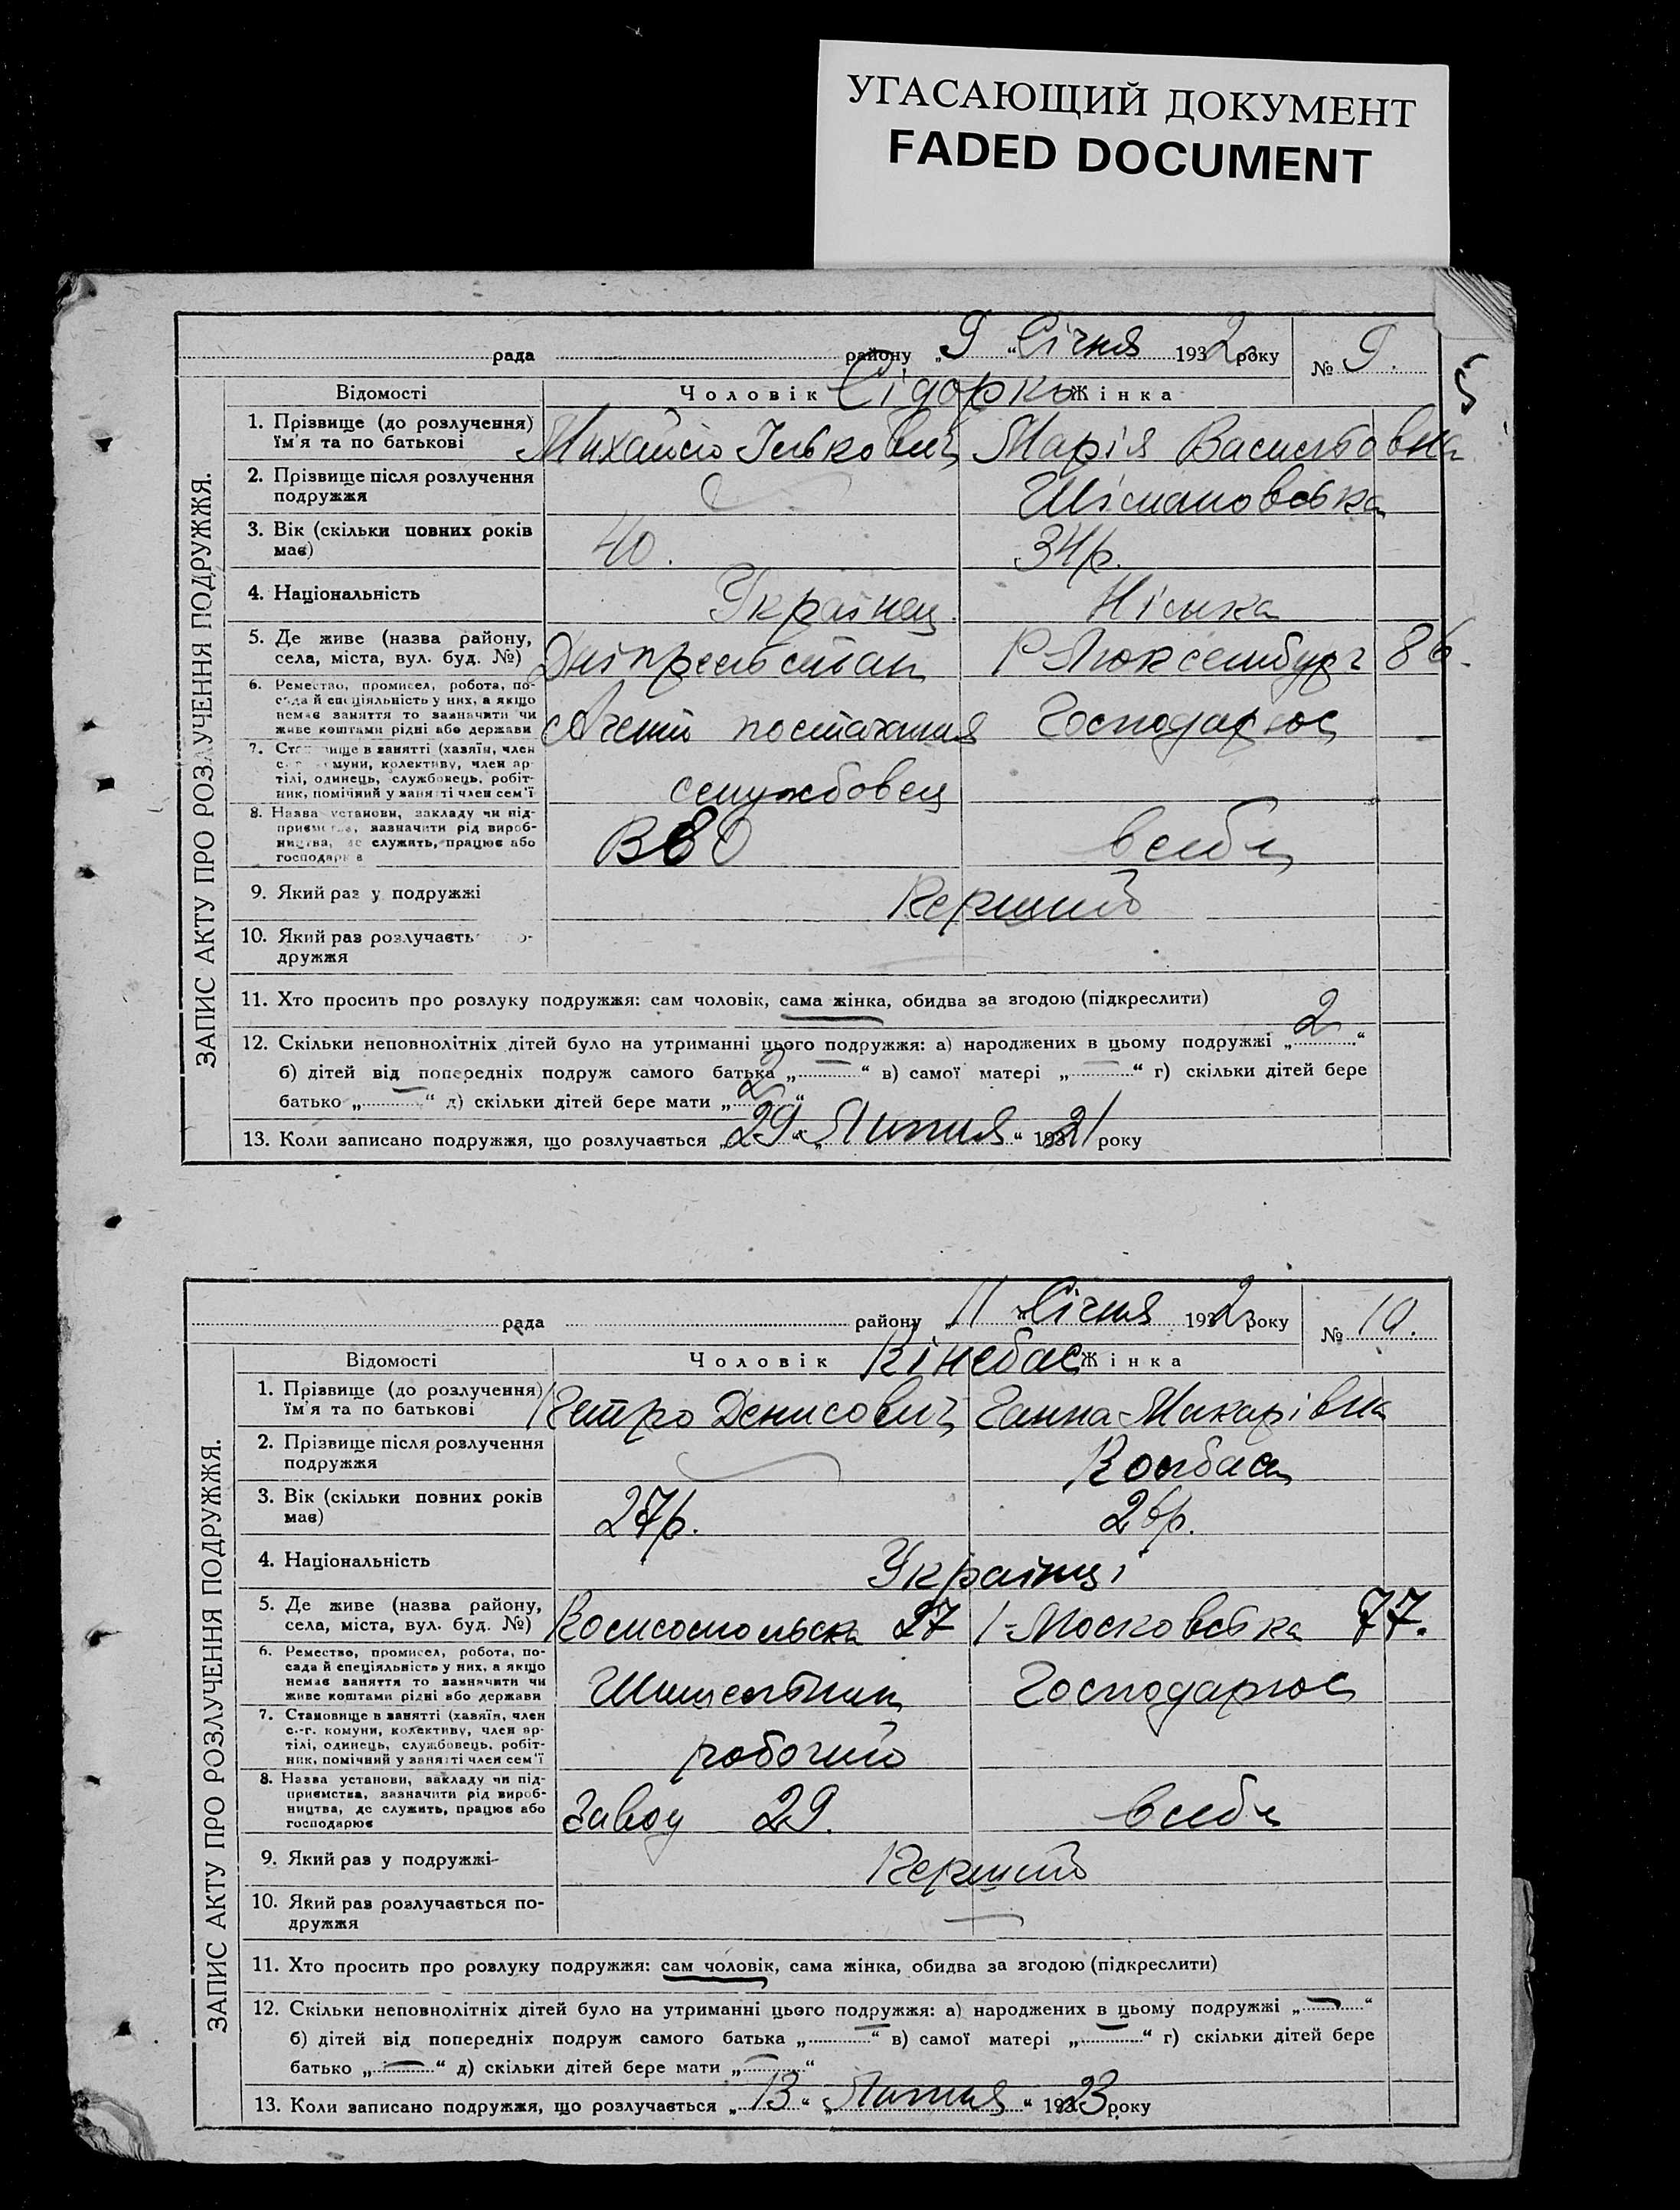 УГАСАЮЩИЙ ДОКУМЕНТ
FADED DOCUMENT
5
ЗАПИС АКТУ ПРО РОЗЛУЧЕННЯ ПОДРУЖЖЯ.
рада району „9 “Січня 1932 року № 9.
Відомості Чоловік Сідорко Жінка
1. Прізвище (до розлучення) їм'я та по батькові Михайло Ількович Марія Васильовна
2. Прізвище після розлучення
подружжя
3. Вік (скільки повних років 40. 34 р.
має)
4. Національність Українец Німка
5. Де живе (назва району,
села, міста, вул. буд. №) Р-Люксембург 86.
6. Ремество, промисел, робота, по-
сада й спеціяльність у них, а якщо
немає заняття то зазначити чи Агент Господарює
живе коштами рідні або держави
7. Становище в занятті (хазяїн, член
с.-г. комуни, колективу, член ар-
тілі, одинець, службовець, робіт- службовец
ник, помічний у занятті член сем'ї
8. Назва установи, закладу чи під-
приємства, зазначити рід вироб-
ництва, де служить, працює або
господарює
9. Який раз у подружжі Перший
10. Який раз розлучаєть о-
дружжя
11. Хто просить про розлуку подружжя: сам чоловік, сама жінка, обидва за згодою (підкреслити)
12. Скільки неповнолітніх дітей було на утриманні цього подружжя: а) народжених в цьому подружжі „2“
б) дітей від попередніх подруж самого батька „—“ в) самої матері „—“ г) скільки дітей бере
батько „—“ д) скільки дітей бере мати „2“
13. Коли записано подружжя, що розлучається „29“ „Липня“ 1921 року
ЗАПИС АКТУ ПРО РОЗЛУЧЕННЯ ПОДРУЖЖЯ.
рада району „11 “Січня 1932 року № 10.
Відомості Чоловік Кінебас Жінка
1. Прізвище (до розлучення) Петро Денисович Ганна Макарівна
їм'я та по батькові
2. Прізвище після розлучення
подружжя Ковбаса
3. Вік (скільки повних років 27 р. 26 р.
має)
4. Національність Українці
5. Де живе (назва району,
села, міста, вул. буд. №) Комсомольска 27 1-Московська 77.
6. Ремество, промисел, робота, по-
сада й спеціяльність у них, а якщо
немає заняття то зазначити чи Господарює
живе коштами рідні або держави
7. Становище в занятті (хазяїн, член
с.-г. комуни, колективу, член ар-
тілі, одинець, службовець, робіт- робочий
ник, помічний у занятті член сем'ї
8. Назва установи, закладу чи під-
приємства, зазначити рід вироб-
ництва, де служить, працює або Завод 29.
господарює
9. Який раз у подружжі Перший
10. Який раз розлучається по- —
дружжя
11. Хто просить про розлуку подружжя: сам чоловік, сама жінка, обидва за згодою (підкреслити)
12. Скільки неповнолітніх дітей було на утриманні цього подружжя: а) народжених в цьому подружжі „—“
б) дітей від попередніх подруж самого батька „—“ в) самої матері „—“ г) скільки дітей бере
батько „—“ д) скільки дітей бере мати „—“
13. Коли записано подружжя, що розлучається „13“ „Липня“ 1923 року